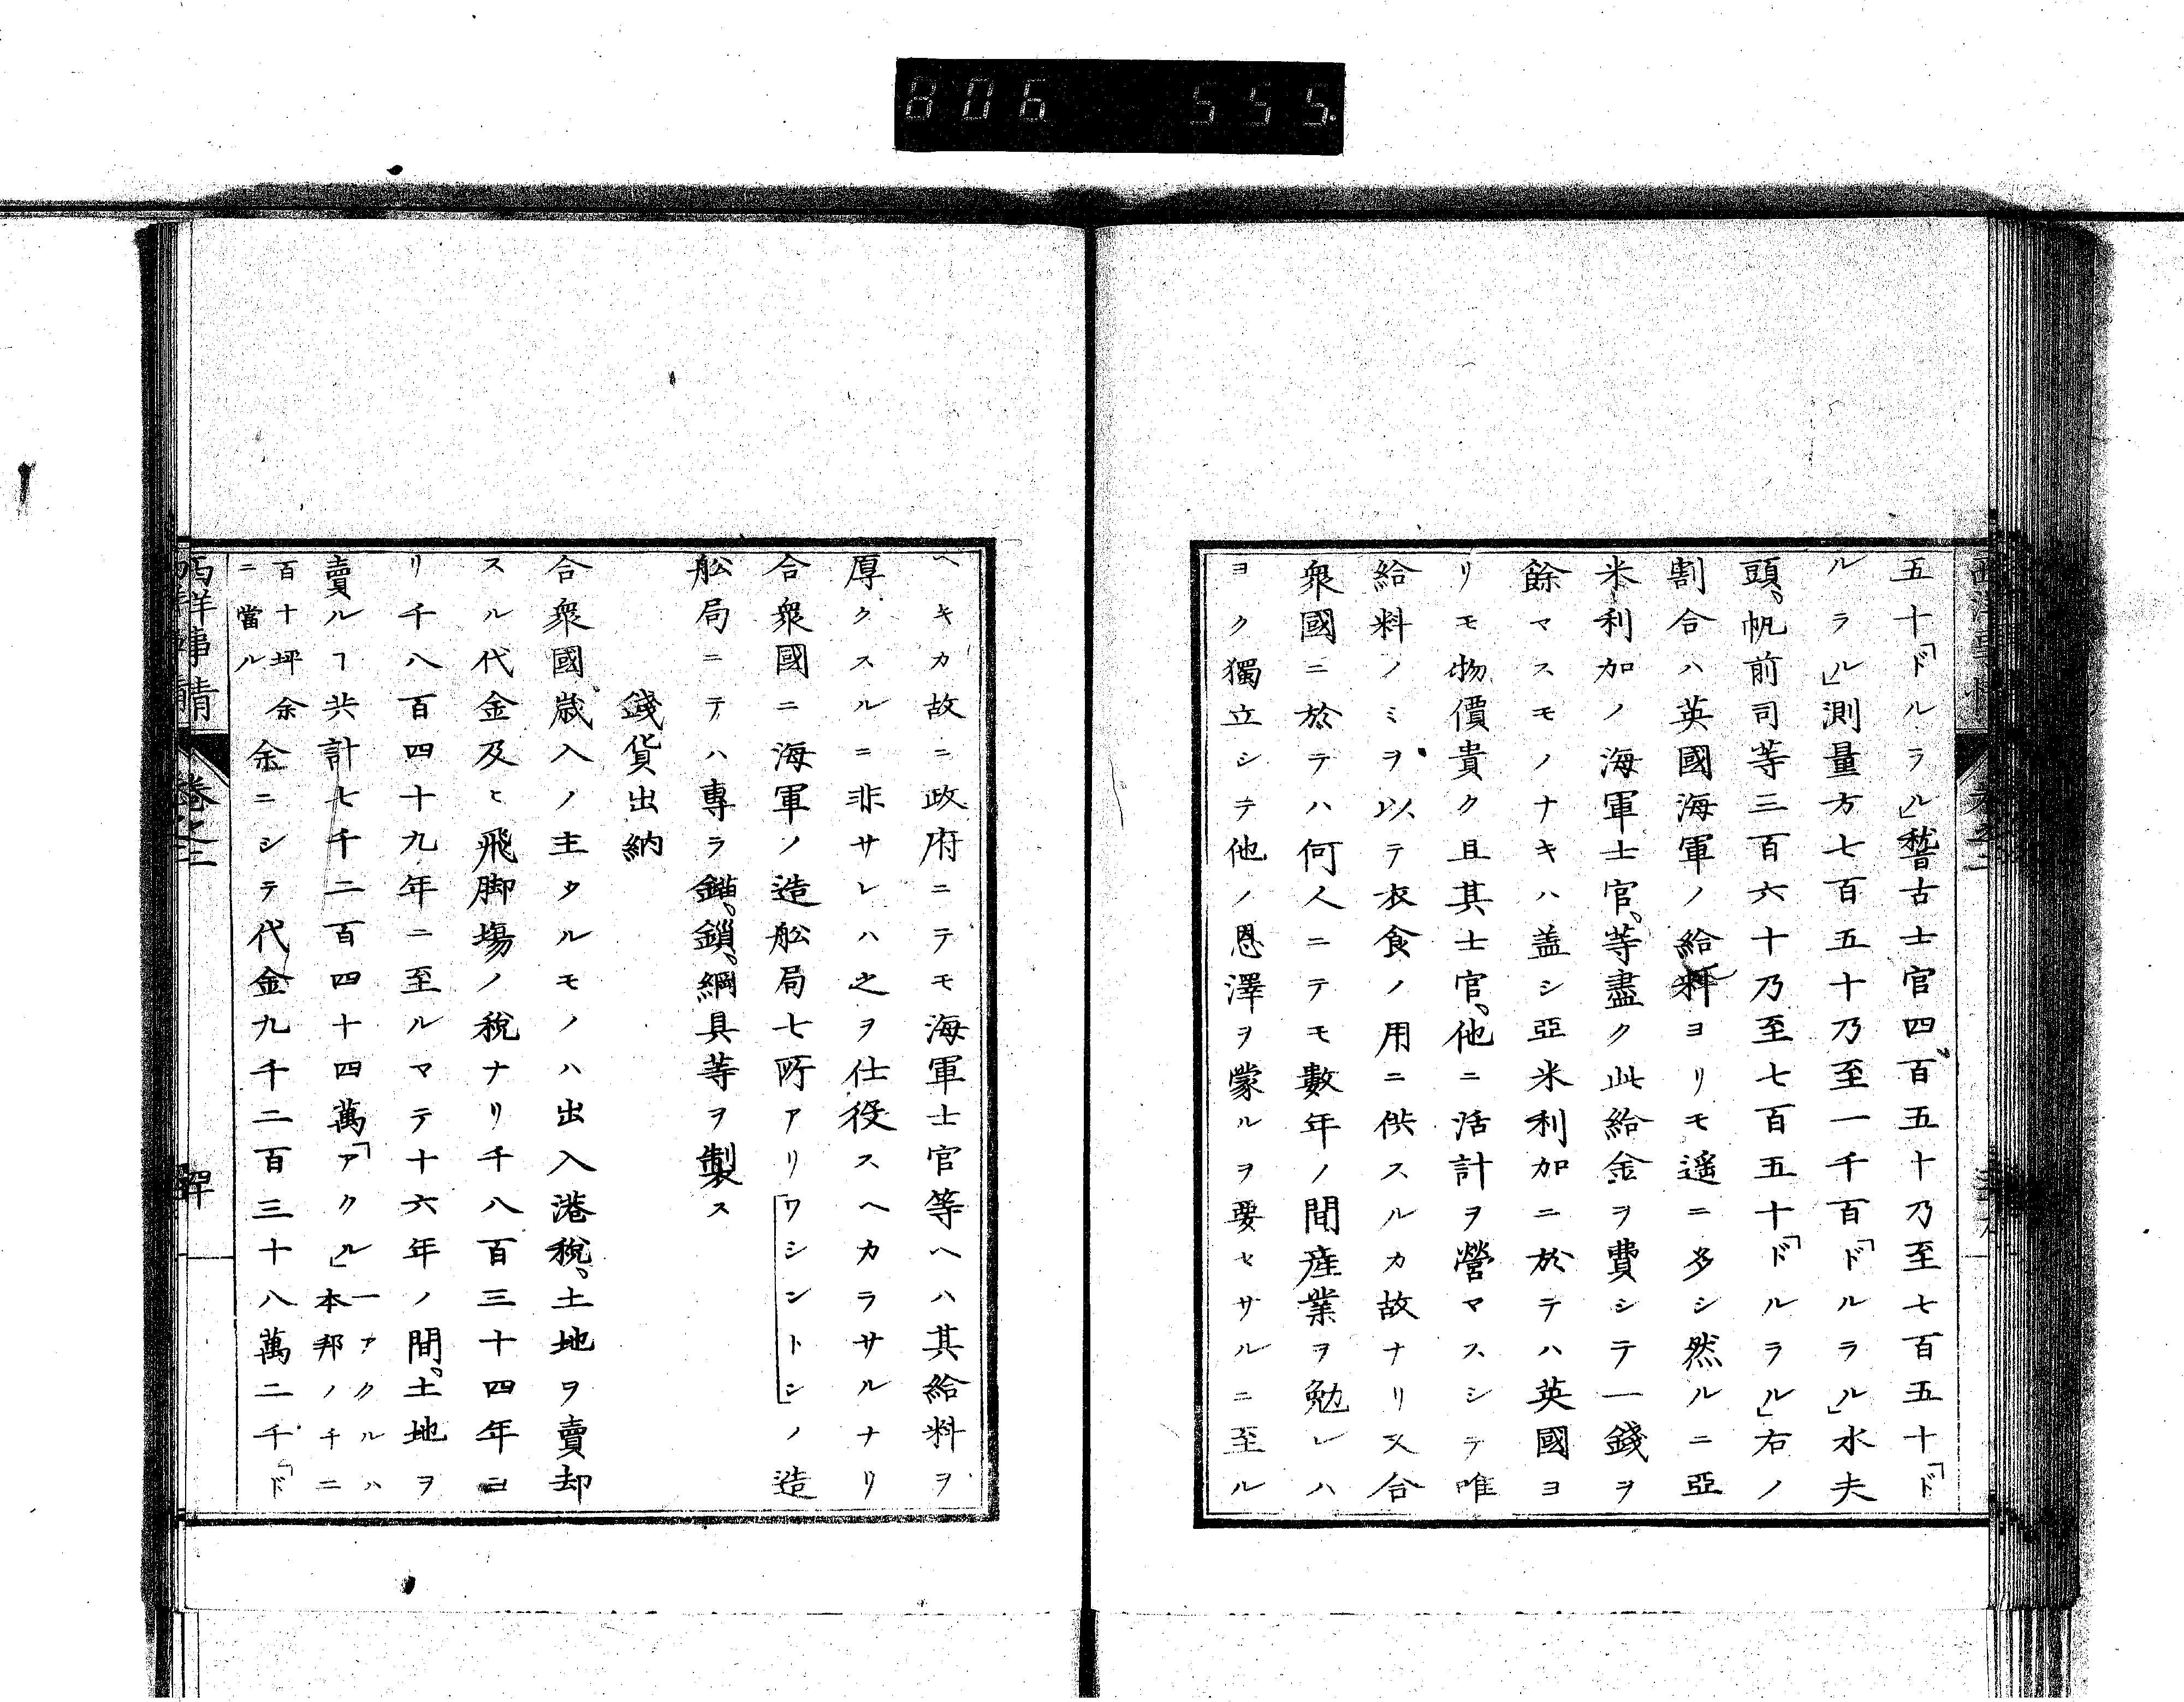 806 555.
五十「ドルラル」稽古士官四百五十乃至七百五十「ド
ルラル」測量方七百五十乃至一千百「ドルラル」水夫
頭。帆前司等三百六十乃至七百五十「ドルラル」右ノ
割合ハ英國海軍ノ給料ヨリモ遥ニ多シ然ルニ亞
米利加ノ海軍士官。等盡ク此給金ヲ費シテ一錢ヲ
餘マスモノナキハ盖シ亞米利加ニ於テハ英國ヨ
リモ物價貴ク且其士官。他ニ活計ヲ營マスシテ唯
給料ノミヲ以テ衣食ノ用ニ供スルカ故ナリ又合
衆國ニ於テハ何人ニテモ數年ノ間産業ヲ勉レハ
ヨク獨立シテ他ノ恩澤ヲ蒙ルヲ要セサルニ至ル
ヘキカ故ニ政府ニテモ海軍士官等ヘハ其給料ヲ
厚クスルニ非サレハ之ヲ仕役スヘカラサルナリ
合衆國ニ海軍ノ造舩局七所アリ「ワシントン」ノ造
舩局ニテハ專ラ錨。鎖。綱具等ヲ製ス
錢貨出納
合衆國歳入ノ主タルモノハ出入港税。土地ヲ賣却
スル代金及ヒ飛脚塲ノ税ナリ千八百三十四年ヨ
リ千八百四十九年ニ至ルマテ十六年ノ間。土地ヲ
賣ルヿ共計七千二百四十四萬「アクル」一アクルハ本邦ノ千二
百十坪余ニ當ル余ニシテ代金九千二百三十八萬二千「ド
西洋事情 卷之二